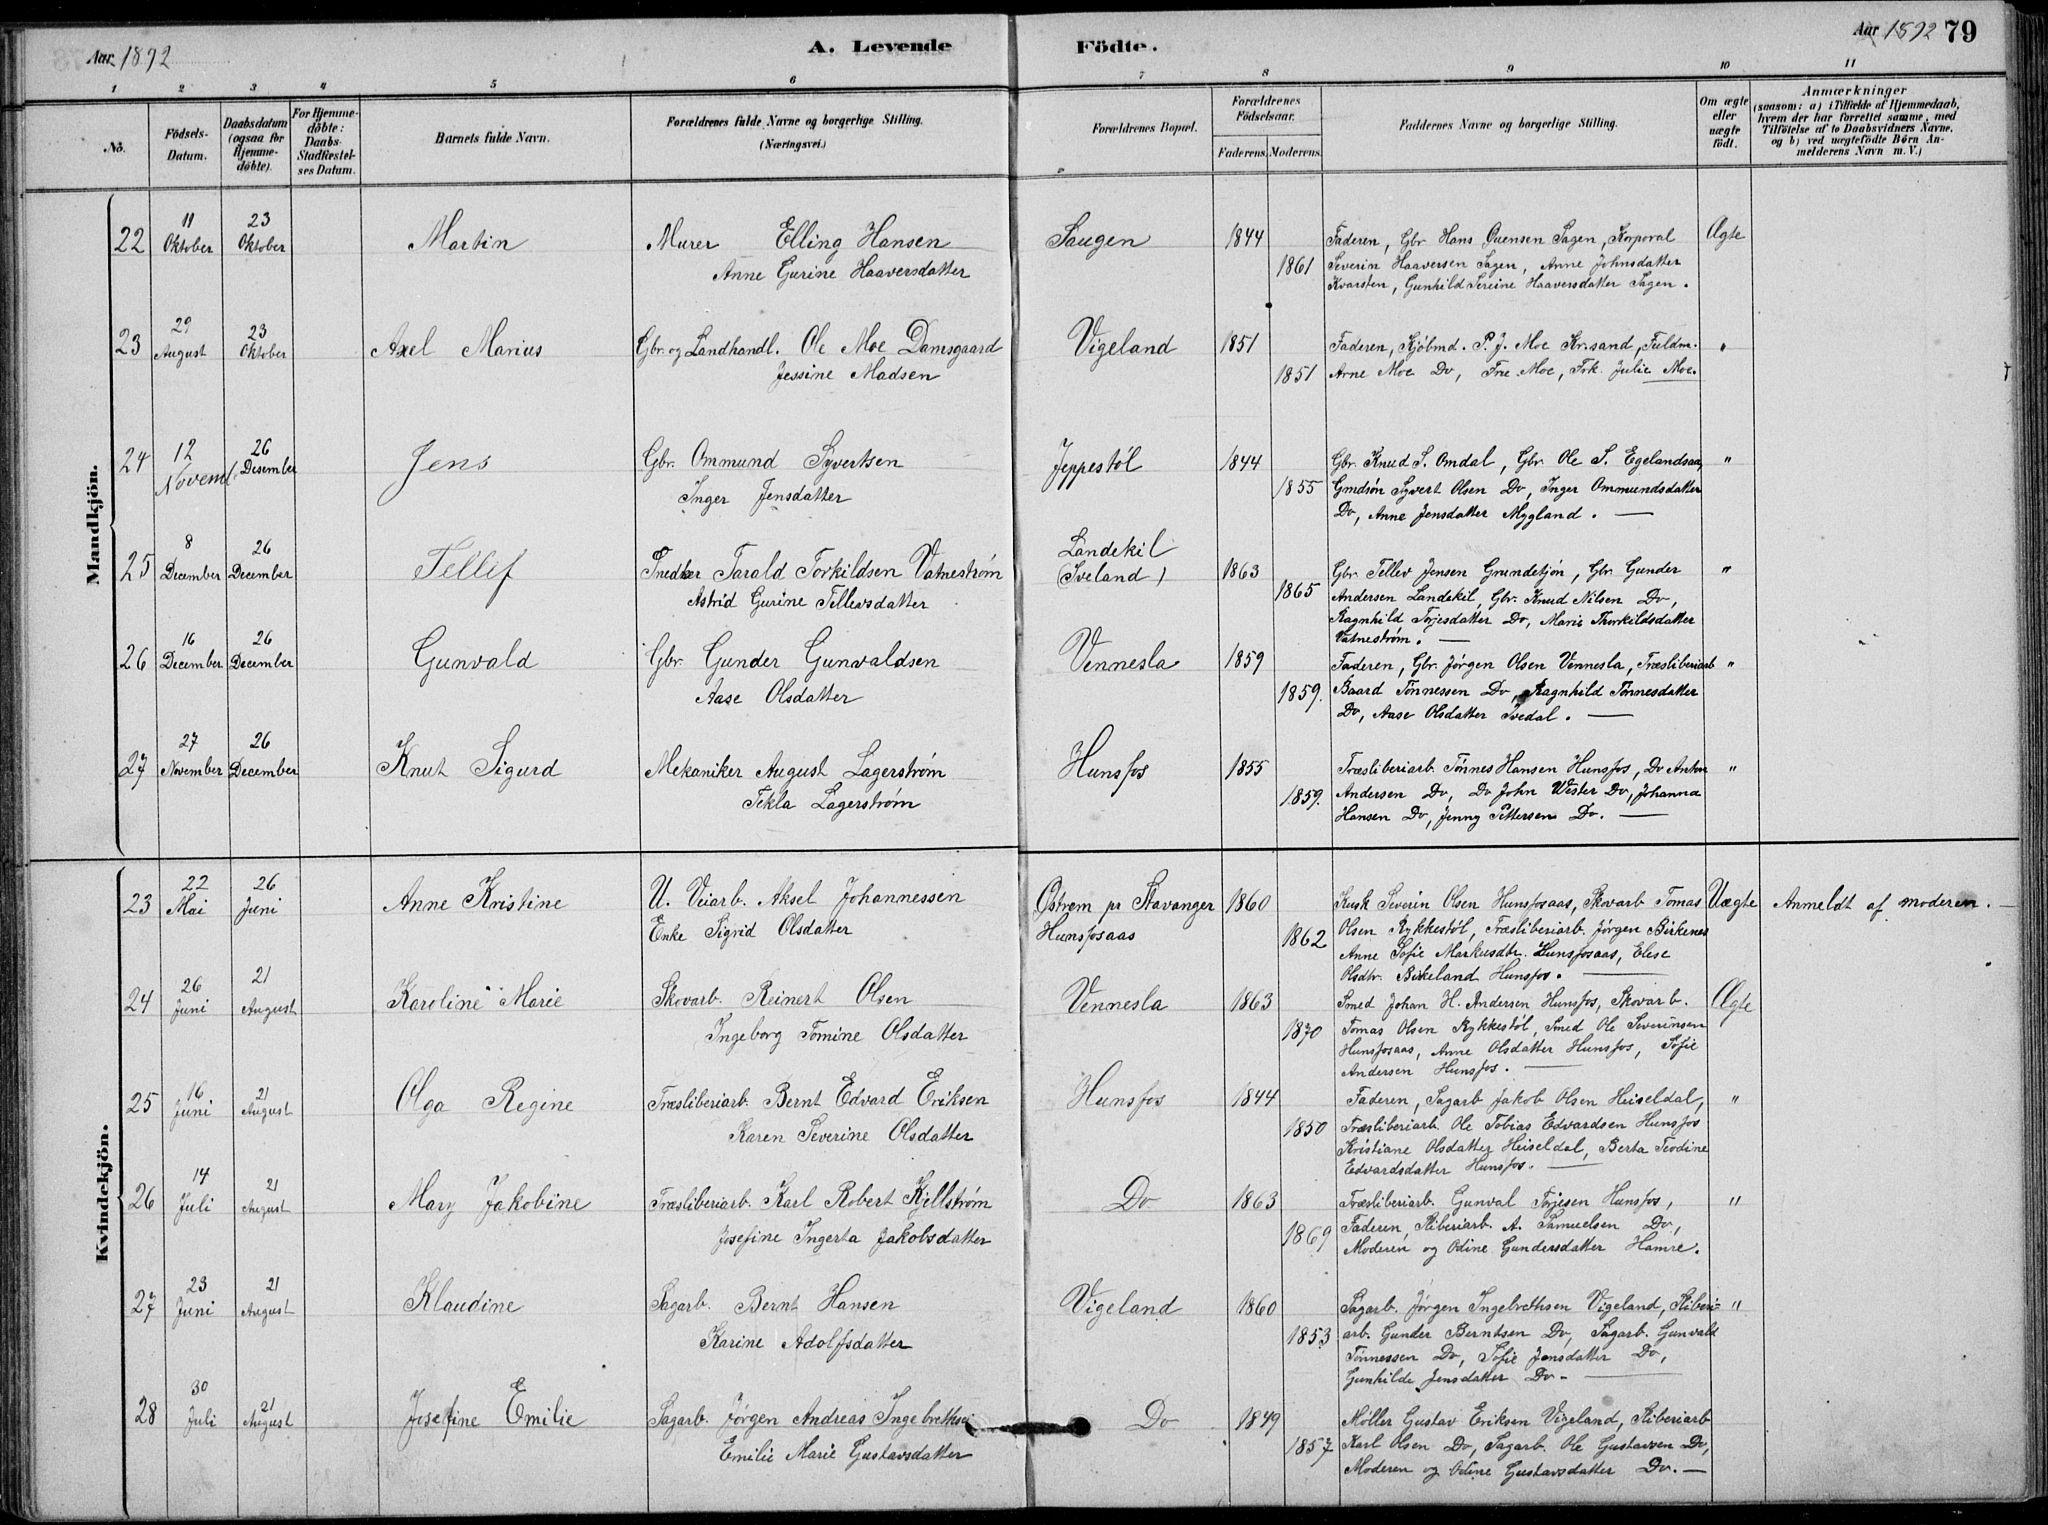 Aar 1892
A. Levende Födte.
Aar 1892 79
1 2 3 4 5 6 7 8 9 10 11
No.
Födsels-Datum.
Daabsdatum (ogsaa for Hjemmedöbte).
For Hjemmedöbte: Daabs-Stadfestelses Datum.
Barnets fulde Navn.
Forældrenes fulde Navne og borgerlige Stilling. (Næringsvei.)
Forældrenes Bopæl.
Forældrenes Födselsaar.
Faderens. Moderens.
Faddernes Navne og borgerlige Stilling.
Om ægte eller uægte födt.
Anmærkninger
(saasom: a) i Tilfælde af Hjemmedaab, hvem der har forrettet samme, med Tilföielse af to Daabsvidners Navne, og b) ved uægtefödte Börn Anmelderens Navn m. V.)
Mandkjön.
22 11 Oktober 23 Oktober Martin Murer Elling Hansen Saugen 1844 Faderen, Gbr. Hans Guensen Sagen, Korporal Ægte
Anne Gurine Haaversdatter 1861 Severin Haaversen Sagen, Anne Johnsdatter
Kvarsten, Gunhild Sereine Haaversdatter Sagen.
23 29 August 23 Oktober Axel Marius Gbr. og Landhandl. Ole Moe Damsgaard Vigeland 1851 Faderen, Kjöbmd. P. J. Moe Kr.sand, Fuldm. "
Jessine Madsen 1851 Arne Moe Do, Frue Moe, Frk. Julie Moe.
24 12 Novemb. 26 Desember Jens Gbr. Ommund Syvertsen Jeppestöl 1844 Gbr. Knud S. Omdal, Gbr. Ole S. Egelandsaa, "
Inger Jensdatter 1855 Gmdsön Syvert Olsen Do, Inger Ommundsdatter
Do, Anne Jensdatter Mygland. —
25 8 December 26 December Tellef Snedker Tarald Torkildsen Vatneström Landekil (Iveland) 1863 Gbr. Tellev Jensen Grundetjön, Gbr. Gunder "
Astrid Gurine Tellevsdatter 1865 Andersen Landekil, Gbr. Knud Nilsen Do,
Ragnhild Torjesdatter Do, Marie Thorkildsdatter
Vatneström. —
26 16 December 26 December Gunvald Gbr. Gunder Gunvaldsen Vennesla 1859 Faderen, Gbr. Jörgen Olsen Vennesla, Træsliberiarb "
Aase Olsdatter 1859. Baard Tönnessen Do, Ragnhild Tönnesdatter
Do, Aase Olsdatter Ivedal. —
27 27 November 26 December Knut Sigurd Mekaniker August Lagerström Hunsfos 1855 Træsliberiarb. Tönnes Hansen Hunsfos, Do Anton "
Tekla Lagerström 1859. Andersen Do, Do John Wester Do, Johanna
Hansen Do, Jenny Pettersen Do. —
Kvindekjön.
23 22 Mai 26 Juni Anne Kristine U. Veiarb. Aksel Johannessen Östrem pr Stavanger 1860 Kusk Severin Olsen Hunsfosaas, Skovarb Tomas Uægte Anmeldt af moderen. —
Enke Sigrid Olsdatter Hunsfosaas 1862 Olsen Rykkestöl, Træsliberiarb. Jörgen Birkenes
Anne Sofie Markusdtr. Hunsfosaas, Elese
Olsdtr. Birkeland Hunsfos. —
24 26 Juni 21 August Karoline Marie Skovarb. Reinert Olsen Vennesla 1863 Smed Johan H. Andersen Hunsfos, Skovarb. Ægte
Ingeborg Tomine Olsdatter 1870 Tomas Olsen Rykkestöl, Smed Ole Severinsen
Hunsfosaas, Anne Olsdatter Hunsfos, Sofie
Andersen Hunsfos. —
25 16 Juni 21 August Olga Regine Træsliberiarb. Bernt Edvard Eriksen Hunsfos 1844 Faderen, Sagarb Jakob Olsen Heiseldal, "
Karen Severine Olsdatter 1850 Træsliberiarb Ole Tobias Edvardsen Hunsfos
Kristiane Olsdatter Heiseldal, Berta Teodine
Edvardsdatter Hunsfos. —
26 14 Juli 21 August Mary Jakobine Træsliberiarb. Karl Robert Kjellström Do 1863 Træsliberiarb. Gunval Torjesen Hunsfos, "
Josefine Ingerta Jakobsdatter 1869 Faderen, Sliberiarb. A. Samuelsen Do,
Moderen og Odine Gundersdatter Hamre.
27 23 Juni 21 August Klaudine Sagarb. Bernt Hansen Vigeland 1860 Sagarb. Jörgen Ingebrethsen Vigeland, Sliberi- "
Karine Adolfsdatter 1853 arb. Gunder Berntsen Do, Sagarb. Gunvald
Tönnessen Do, Sofie Jensdatter Do,
Gunhilde Jensdatter Do. —
28 30 Juli 21 August Josefine Emilie Sagarb. Jörgen Andreas Ingebrethsen Do 1849 Möller Gustav Eriksen Vigeland, Sliberiarb
Emilie Marie Gustavsdatter 1857 Karl Olsen Do, Sagarb. Ole Gustavsen Do,
Moderen og Odine Gustavsdatter Do. —